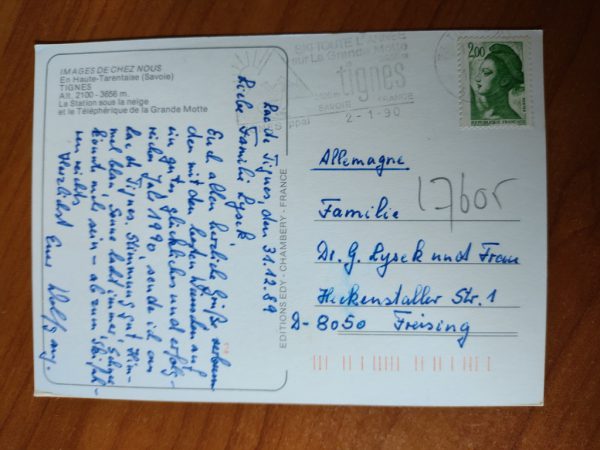 IMAGES DE CHEZ NOUS
En Haute-Tarentaise (Savoie)
TIGNES
Alt. 2100 - 3656 m.
La Station sous la neige
et le Téléphérique de la Grande Motte
Lac de Tignes, den 31.12.89
Liebe Familie Lysek,
Euch allen herzliche Grüße neben
den mit den besten Wünschen auf
ein gutes, glückliches und erfolg-
reiches Jahr 1990, sende ich aus
Lac de Tignes. Stimmung gut, Him-
mel blau, Sonne lacht immer, Schnee
könnte mehr sein - als zum
reicht's
Herzlichst Euer Wolfgang.
EDITIONS EDY - CHAMBERY - FRANCE
sur La Grande Motte
tignes
SAVOIE FRANCE
2-1-90
2,00
REPUBLIQUE FRANÇAISE
Allemagne
17605
Familie
Dr. G. Lysek und Frau
Heckenstaller Str. 1
D-8050 Freising